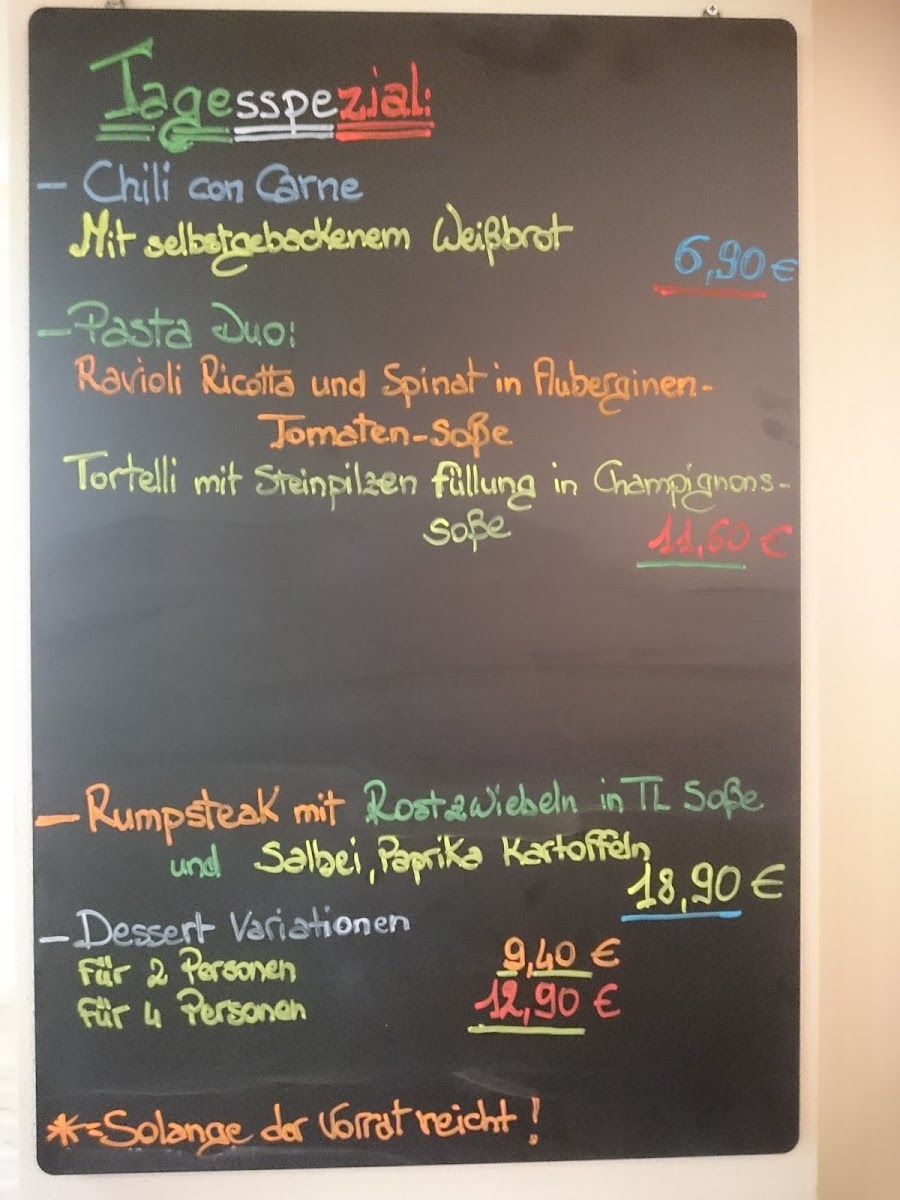 Tagesspezial:
- Chili con Carne
Mit selbstgebackenem Weißbrot
6,90 €
- Pasta Duo:
Ravioli Ricotta und Spinat in Auberginen-
Tomaten-Soße
Tortelli mit Steinpilzen füllung in Champignons-
soße
11,60 €
- Rumpsteak mit Röstzwiebeln in TL Soße
und Salbei, Paprika Kartoffeln
18,90 €
- Dessert Variationen
für 2 Personen 9,40 €
für 4 Personen 12,90 €
*=Solange der Vorrat reicht!